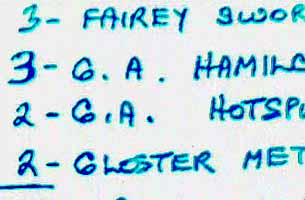 3 - FAIREY SWOR
3 - G. A. HAMILC
2 - G.A. HOTSP
2 - GLOSTER MET